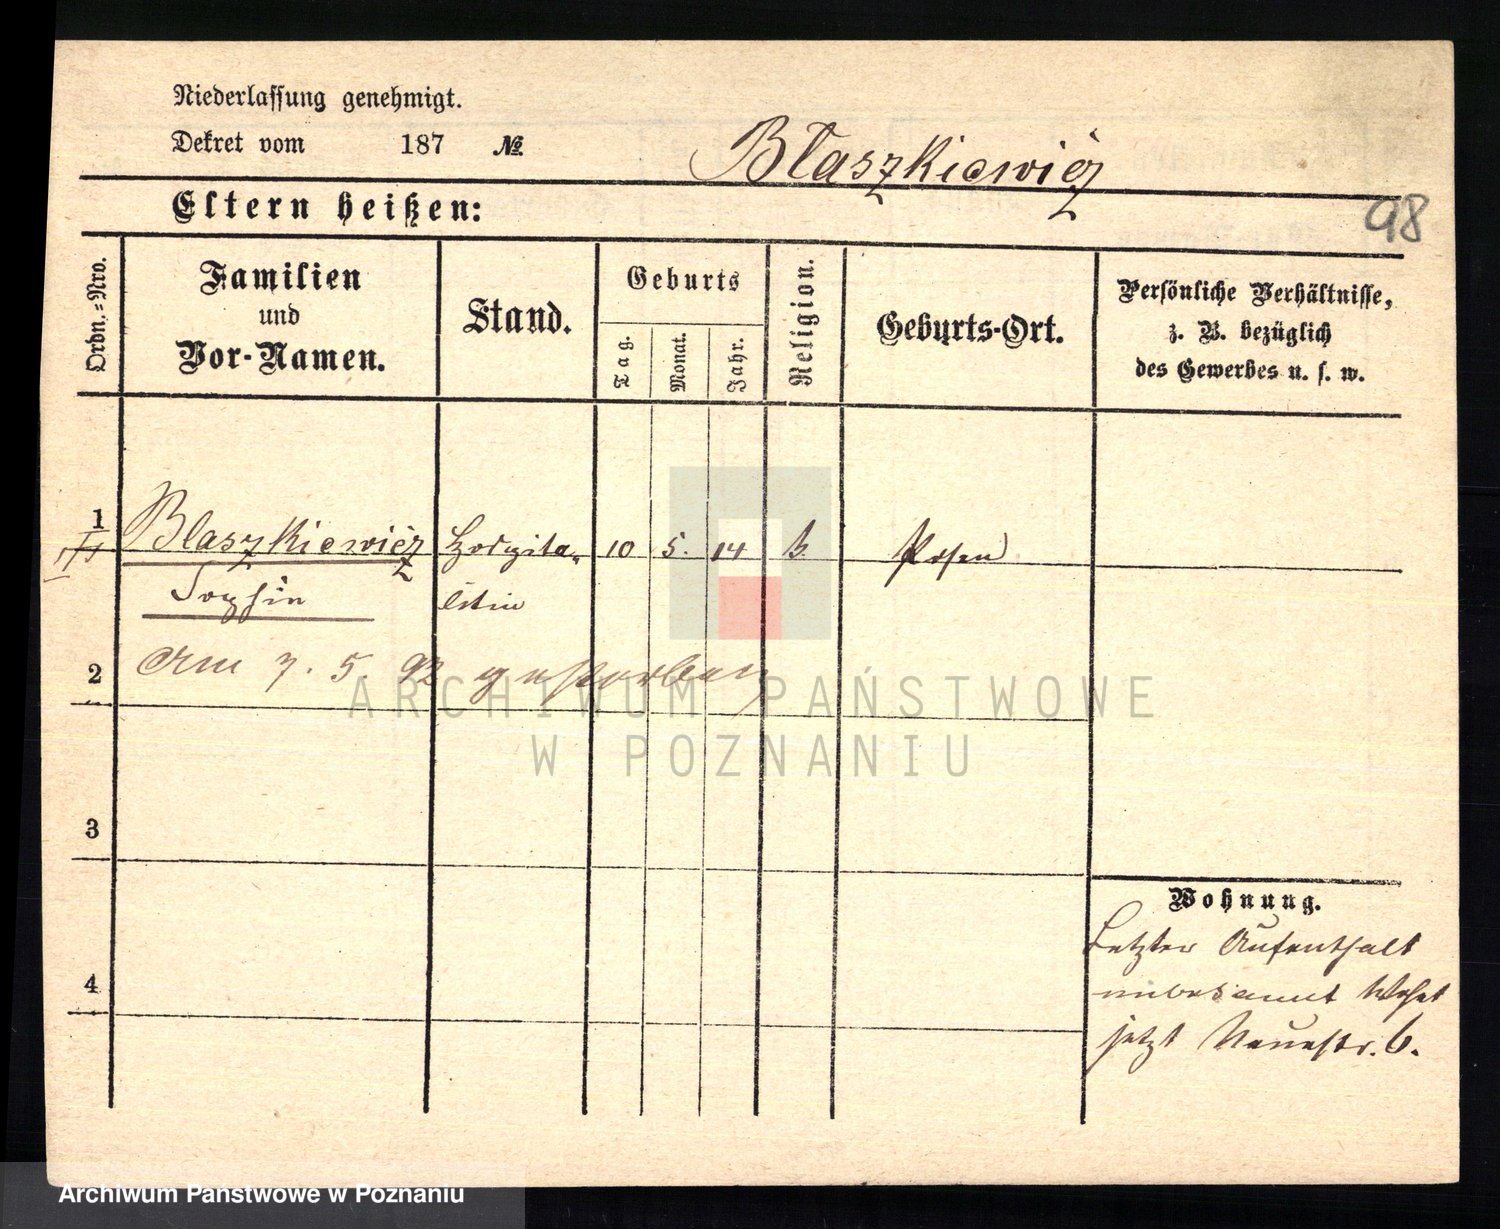 Niederlassung genehmigt.
Dekret vom 187 №
Błaszkiewicz
Eltern heißen:
98
Ordn.=Nro.
Familien
und
Vor-Namen.
Stand.
Geburts
Tag.
Monat.
Jahr.
Religion.
Geburts-Ort.
Persönliche Verhältnisse,
z. B. bezüglich
des Gewerbes u. s. w.
1 Blaszkiewicz Hospita- 10 5. 14 Posen
Sophie listin
2 Am 7. 5. 92 gestorben
ARCHIWUM PAŃSTWOWE
W POZNANIU
3
4
Wohnung.
Letzter Aufenthalt
unbekannt Wohnt
jetzt Neuestr. 6.
Archiwum Państwowe w Poznaniu